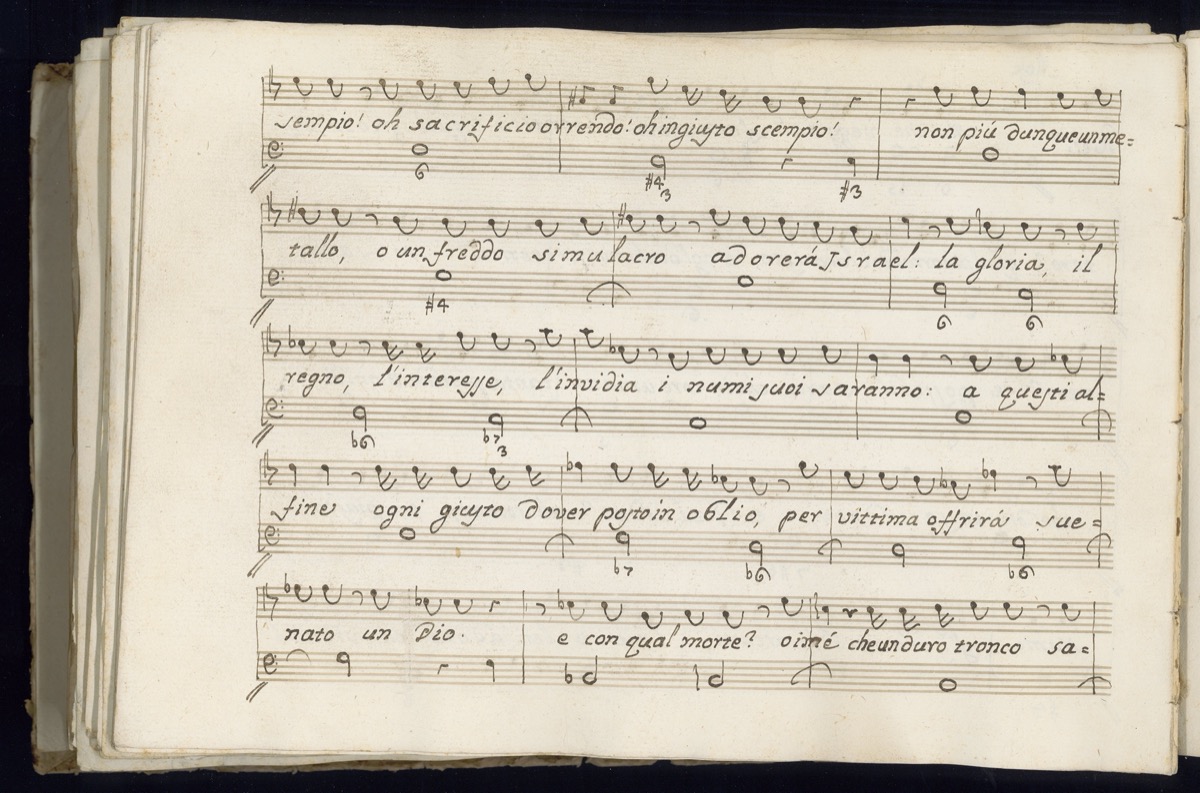 sempio! oh sacrificio orrendo! oh ingiusto scempio! non piú dunque un me=
6 #4 3 #3
tallo, o un freddo simulacro adorerá Israel: la gloria, il
#4 6 6
regno, l'interesse, l'invidia i numi suoi saranno: a questi al=
b6 b7 3
fine ogni giusto dover posto in oblio, per vittima offrirá sue=
b7 b6 b6
nato un Dio. e con qual morte? oimé che un duro tronco sa=